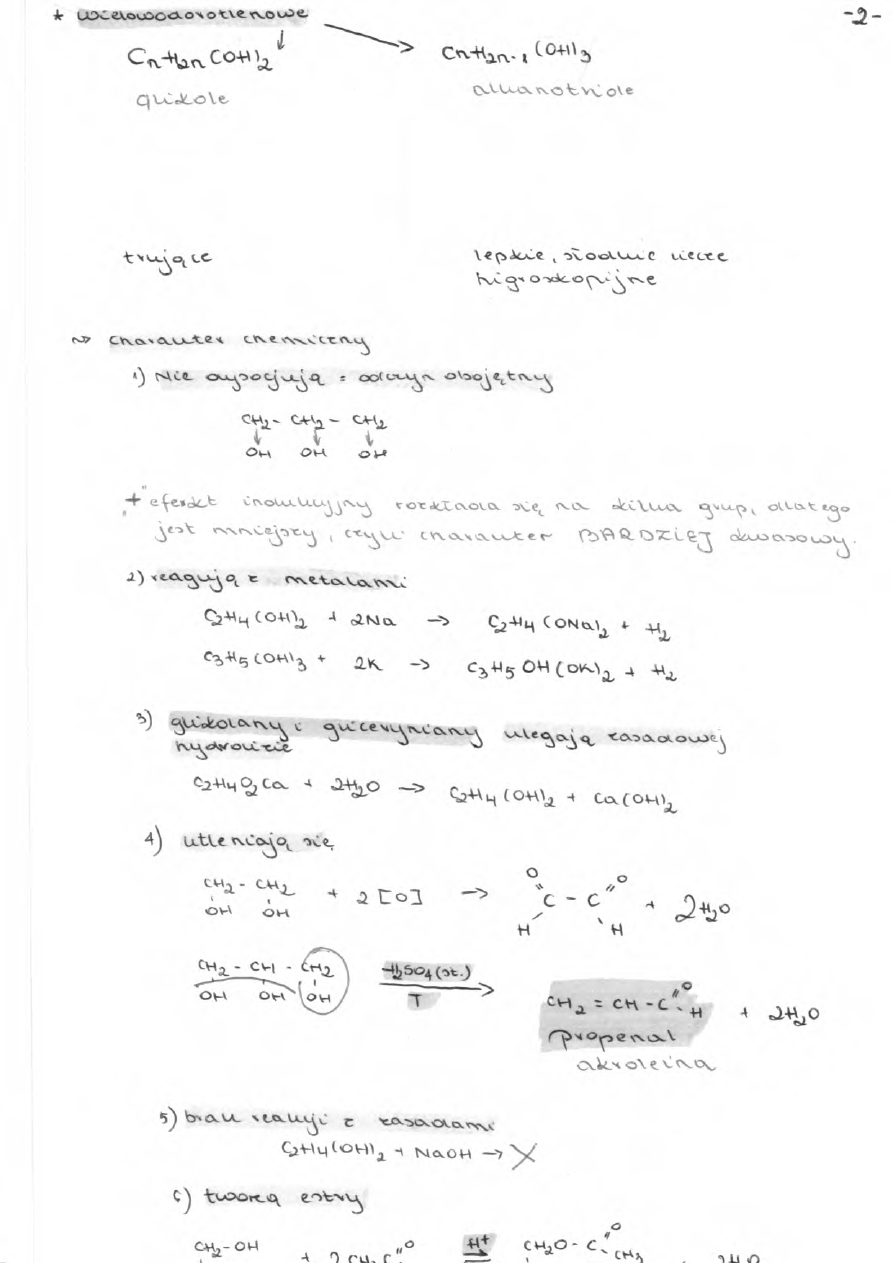 * wielowodorotlenowe
-2-
CnH2n(OH)2 → CnH2n-1(OH)3
glikole
alkanotriole
trujące
lepkie, słodkie ciecze
higroskopijne
~> charakter chemiczny
1) Nie dysocjują = odczyn obojętny
CH2 - CH2 - CH2
OH OH OH
"+" efekt indukcyjny rozkłada się na kilka grup, dlatego
jest mniejszy, czyli charakter BARDZIEJ kwasowy.
2) reagują z metalami
C2H4(OH)2 + 2Na → C2H4(ONa)2 + H2
C3H5(OH)3 + 2K → C3H5OH(OK)2 + H2
3) glikolany i gliceryniany ulegają zasadowej
hydrolizie
C2H4O2Ca + 2H2O → C2H4(OH)2 + Ca(OH)2
4) utleniają się
O O
CH2 - CH2 + 2[O] → C - C + 2H2O
OH OH H H
CH2 - CH - CH2 H2SO4(st.)
OH OH OH T
CH2 = CH - C O H + 2H2O
propenal
akroleina
5) brak reakcji z zasadami
C2H4(OH)2 + NaOH → X
6) tworzą estry
CH2-OH + 2CH3C O H+ CH2O - C O CH3 2H2O